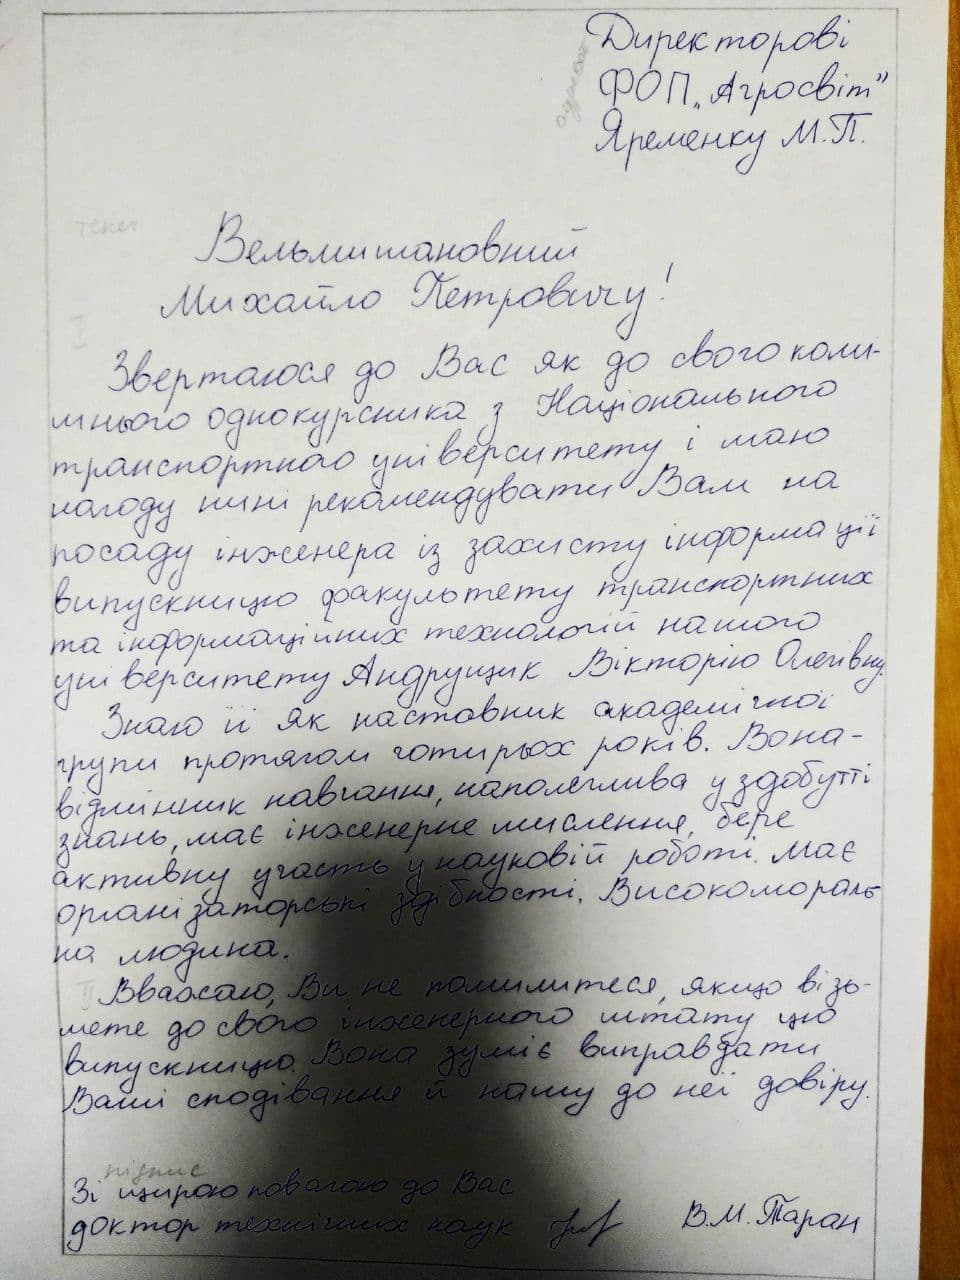 Директорові
ФОП „Агросвіт"
Яременку М.П.
адресат
текст
Вельмишановний
Михайло Петровичу!
I
Звертаюся до Вас як до свого коли-
шнього однокурсника з Національного
транспортнао університету і маю
нагоду нині рекомендувати Вам на
посаду інженера із захисту інформації
випускницю факультету транспортних
та інформаційних технологій нашого
університету Андрущик Вікторію Олегівну.
Знаю її як наставник академічної
групи протягом чотирьох років. Вона-
відмінник навчання, наполеглива у здобутті
знань, має інженерне мислення, бере
активну участь у науковій роботі. Має
організаторські здібності. Високомораль
на людина.
II
Вважаю, Ви не помилитеся, якщо візь-
мете до свого інженерного штату цю
випускницю. Вона зуміє виправдати
Ваші сподівання й нашу до неї довіру.
підпис
Зі щирою повагою до Вас
доктор технічних наук В.М.Таран